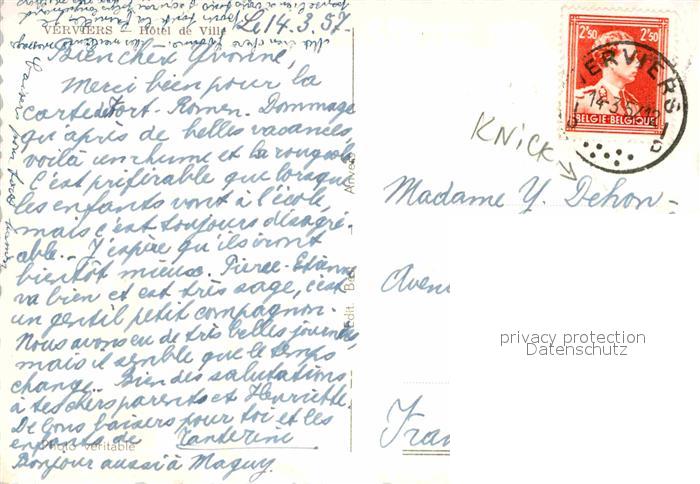 VERVIERS – Hôtel de Ville
Le 14.3.57.
Bien chère Yvonne,
Merci bien pour la
carte de Fort-Romeu. Dommage
qu'après de belles vacances
voilà un rhume et la rougeole
C'est préférable que lorsque
les enfants vont à l'école,
mais c'est toujours désagré-
able.- J'espère qu'ils iront
bientôt mieux. Pierre-Etienne
va bien et est très sage, c'est
un gentil petit compagnon.
Nous avons eu de très belles journées,
mais il semble que le temps
change. Bien des salutations
à tes chers parents et Henriette.
De bons baisers pour toi et les
enfants de Tanterini
Photo véritable
Bonjour aussi à Maguy.
2F50 2F50
BELGIE-BELGIQUE
VERVIERS
14-3-57
KNICK
Madame Y. Dehon-
Aven
Fran
privacy protection
Datenschutz